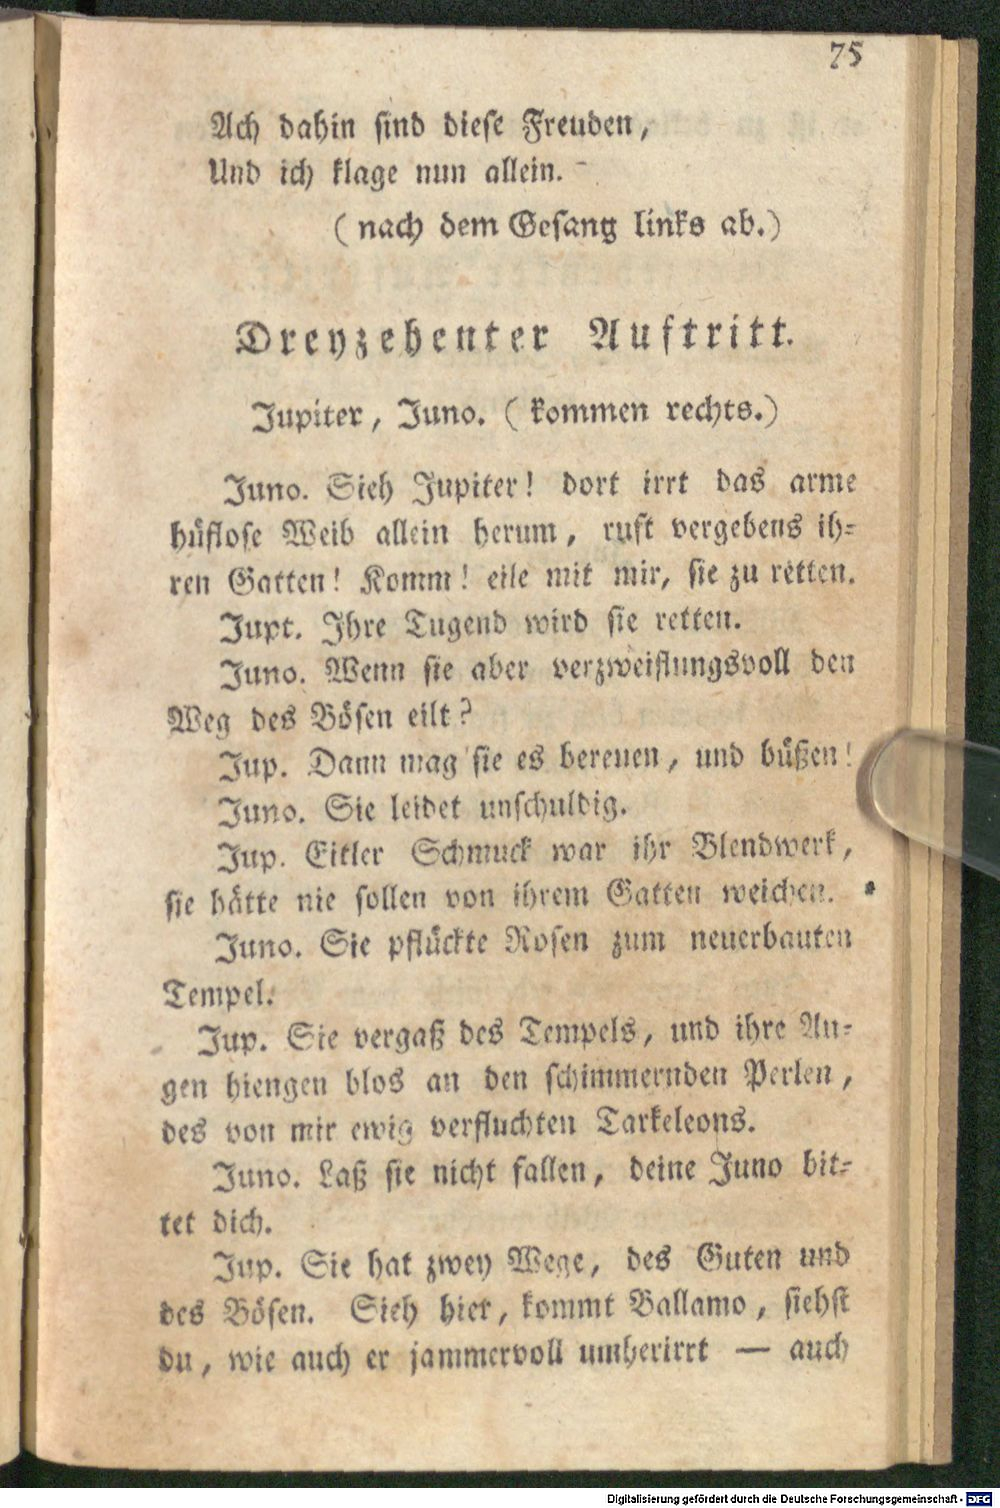 75
Ach dahin sind diese Freuden,
Und ich klage nun allein.
(nach dem Gesang links ab.)
Dreyzehenter Auftritt.
Jupiter, Juno. (kommen rechts.)
Juno. Sieh Jupiter! dort irrt das arme
hüflose Weib allein herum, ruft vergebens ih-
ren Gatten! Komm! eile mit mir, sie zu retten.
Jupt. Ihre Tugend wird sie retten.
Juno. Wenn sie aber verzweiflungsvoll den
Weg des Bösen eilt?
Jup. Dann mag sie es bereuen, und büßen!
Juno. Sie leidet unschuldig.
Jup. Eitler Schmuck war ihr Blendwerk,
sie hätte nie sollen von ihrem Gatten weichen.
Juno. Sie pflückte Rosen zum neuerbauten
Tempel.
Jup. Sie vergaß des Tempels, und ihre Au-
gen hiengen blos an den schimmernden Perlen,
des von mir ewig verfluchten Tarkeleons.
Juno. Laß sie nicht fallen, deine Juno bit-
tet dich.
Jup. Sie hat zwey Wege, des Guten und
des Bösen. Sieh hier, kommt Ballamo, siehst
du, wie auch er jammervoll umherirrt — auch
Digitalisierung gefördert durch die Deutsche Forschungsgemeinschaft - DFG